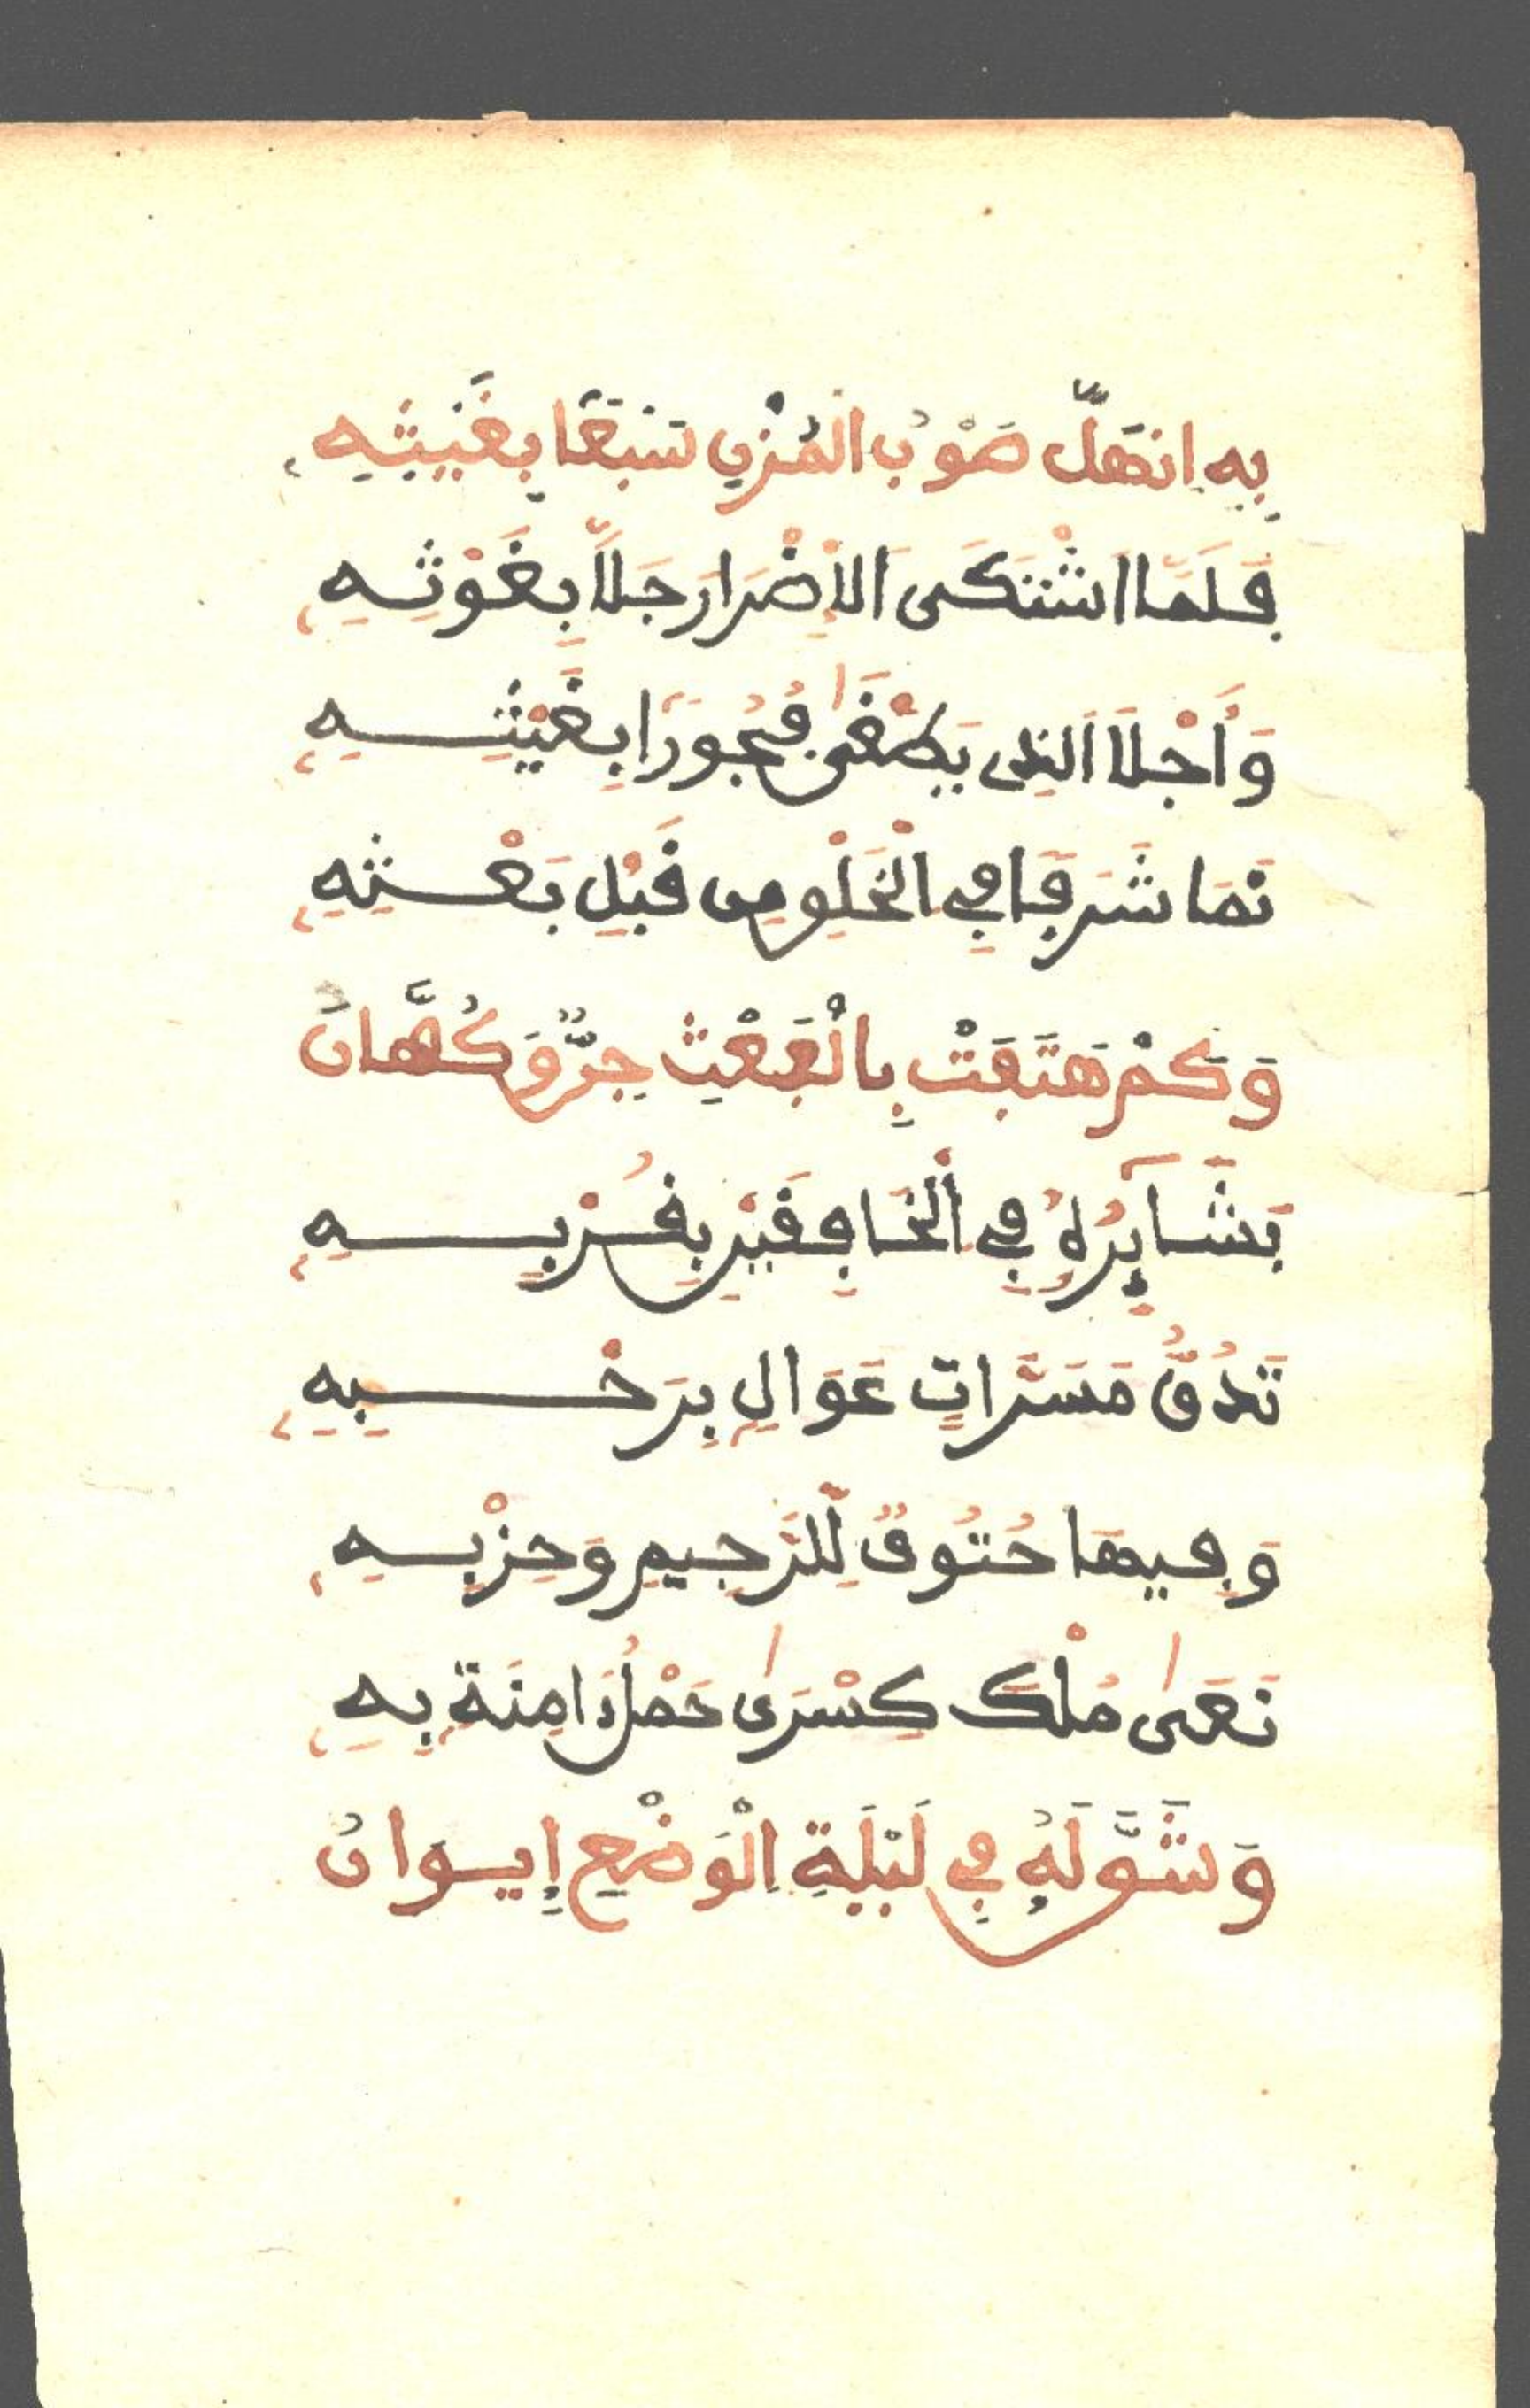 بِهِ انْهَلَّ صَوْبُ الْمُزْنِ سَبْعًا بِغَيْثِهِ
فَلَمَّا اشْتَكَى الاِضْرَارَ جَلَّا بِغَوْثِهِ
وَأَجْلَا الذِى يَطْغَى فُجُورًا بِغَيْثِهِ
نَمَا شَرَفًا فِي الْخَلْقِ مِن قَبْلِ بَعْثِهِ
وَكَمْ هَتَفَتْ بِالْبَعْثِ جِنٌّ وَكُهَّانُ
بَشَآئِرُهُ فِي الْخَافِقَيْنِ بِقُرْبِهِ
تَدُقُّ مَسَرَّاتٍ عَوَالٍ بِرَحْبِهِ
وَفِيهَا حُتُوفٌ لِلرَّجِيمِ وَحِزْبِهِ
نَعَى مُلْكَ كِسْرَى حَمْلُ ءَامِنَةٍ بِهِ
وَشُقَّ لَهُ فِي لَيْلَةِ الْوَضْعِ إِيوَانُ